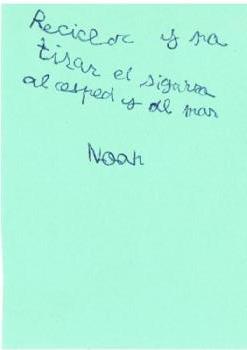 Reciclar y na
tirar el sigarra
al cesped y al mar
Noah